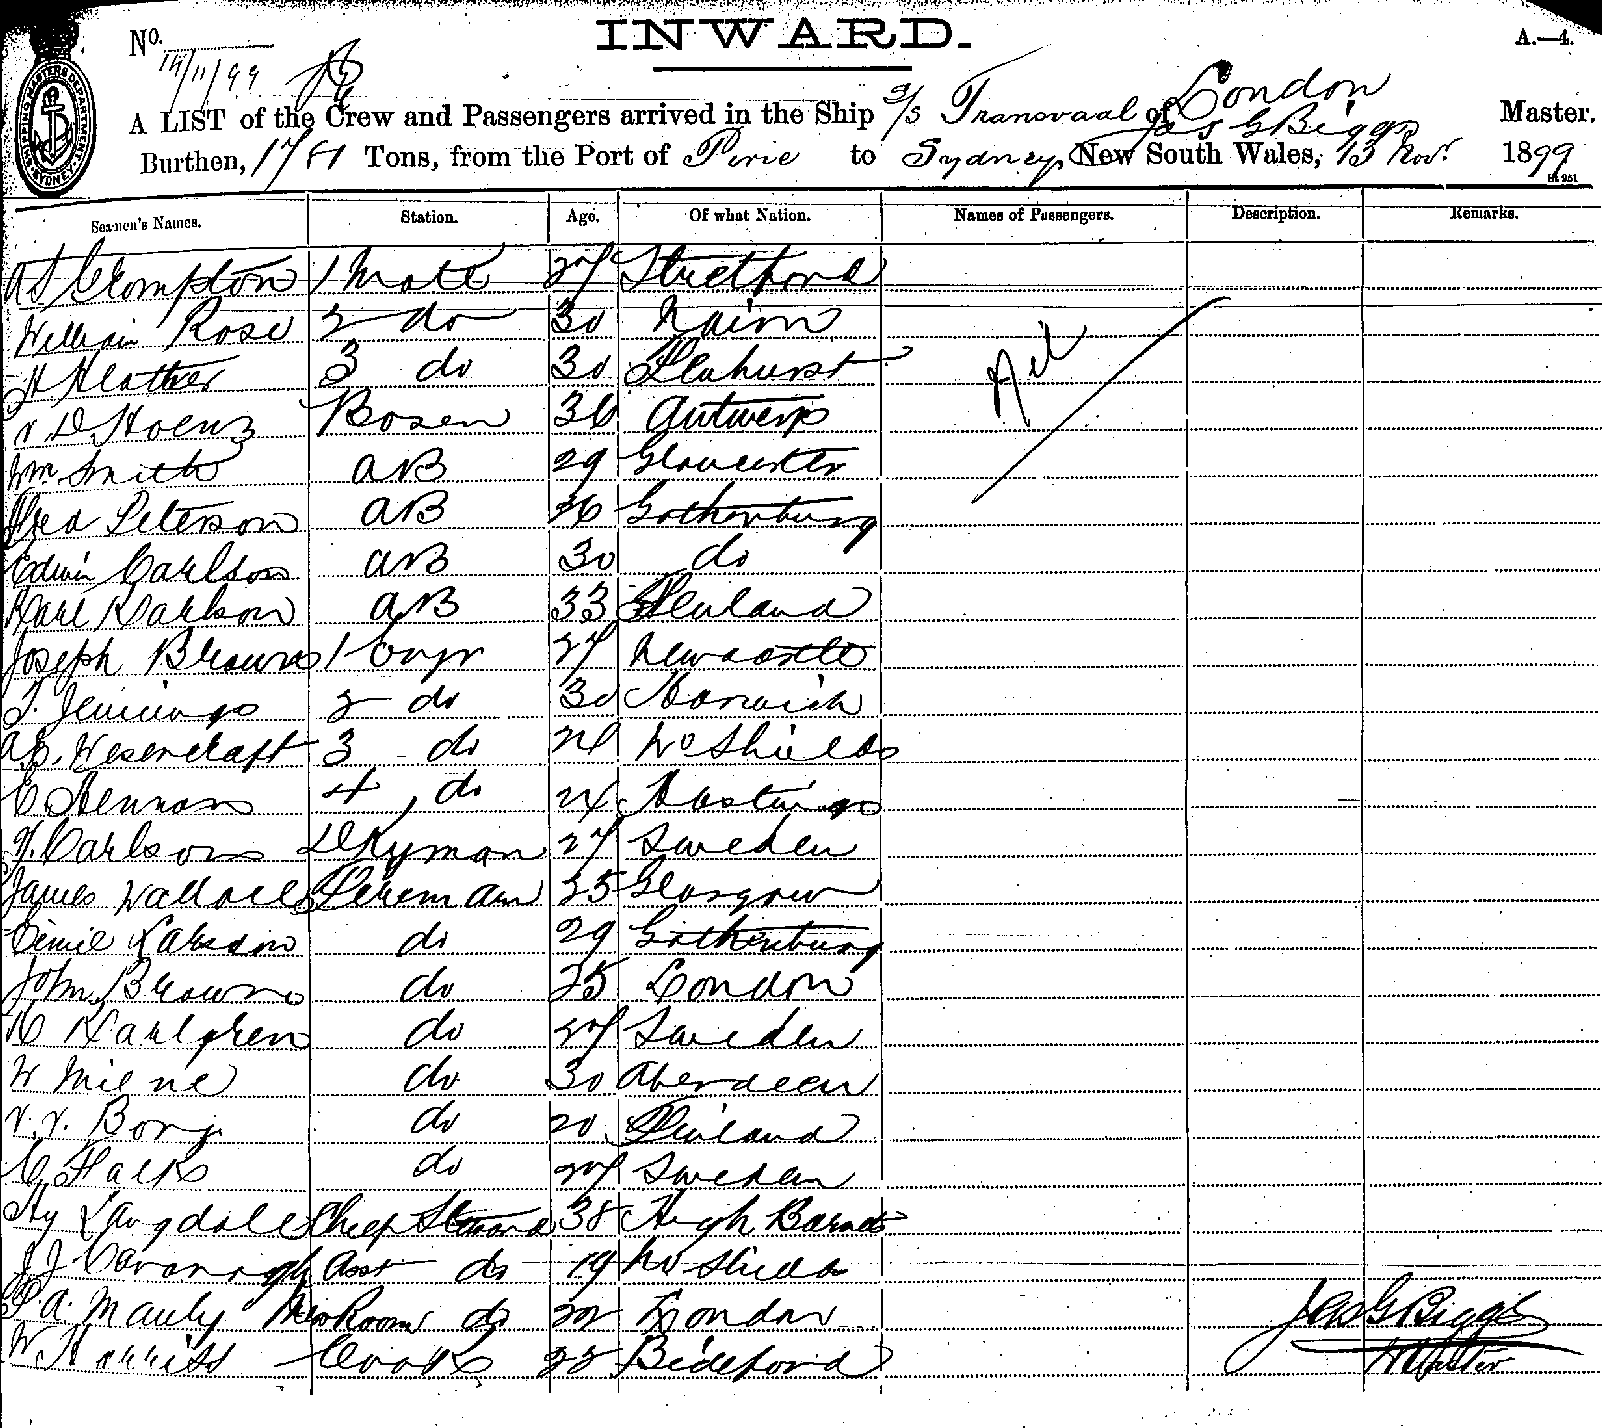 INWARD.
A.—4.
No.
14/11/99
A LIST of the Crew and Passengers arrived in the Ship S/S Transvaal of London Jas G Biggs Master.
Burthen, 1781 Tons, from the Port of Pirie to Sydney, New South Wales, 13 Novr. 1899
Seamen's Names. Station. Age. Of what Nation. Names of Passengers. Description. Remarks.
Crompton 1 Mate 27 Stretford
William Rose 2 do 30 Nairn
H Heather 3 do 30 Nil
Bosen 36 Antwerp
Wm. Smith AB 29 Gloucester
Peterson AB 36 Gothenburg
Edwin Carlson AB 30 do
Karl Karlson AB 33 Finland
Joseph Brown 1 Engr 27 Newcastle
T. Jennings 2 do 30 Harwich
3 do No Shields
C. Hennan 4 do 24 Hastings
Carlson Dkyman 27 Sweden
James Wallace Fireman 25 Glasgow
Emil Larsson do 29 Gothenburg
John Brown do 25 London
Karlgren do 27 Sweden
W Milne do 30 Aberdeen
Borg do 20 Finland
C Falk do 27 Sweden
Hy Langdale Chief Steward 38 High Barnet
J J Cavanagh Asst do 19 No Shields
Mauly Mess Room do 22 London
W. Harriss Cook 22 Bideford
Jas G Biggs
Master